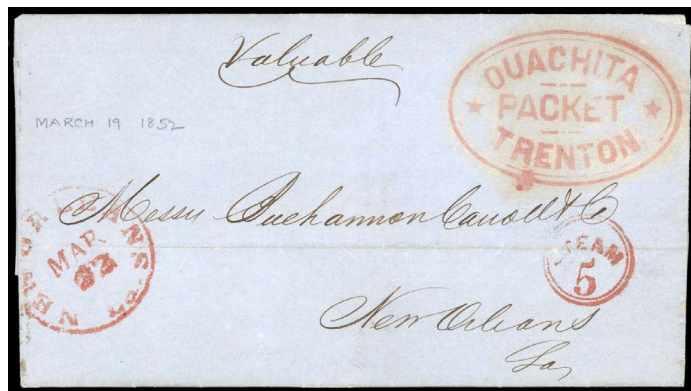 Valuable
OUACHITA
PACKET
TRENTON.
MARCH 19 1852
Messrs Buchannon Carroll & Co
NEW ORLEANS LA
MAR
STEAM
5
New Orleans
La,